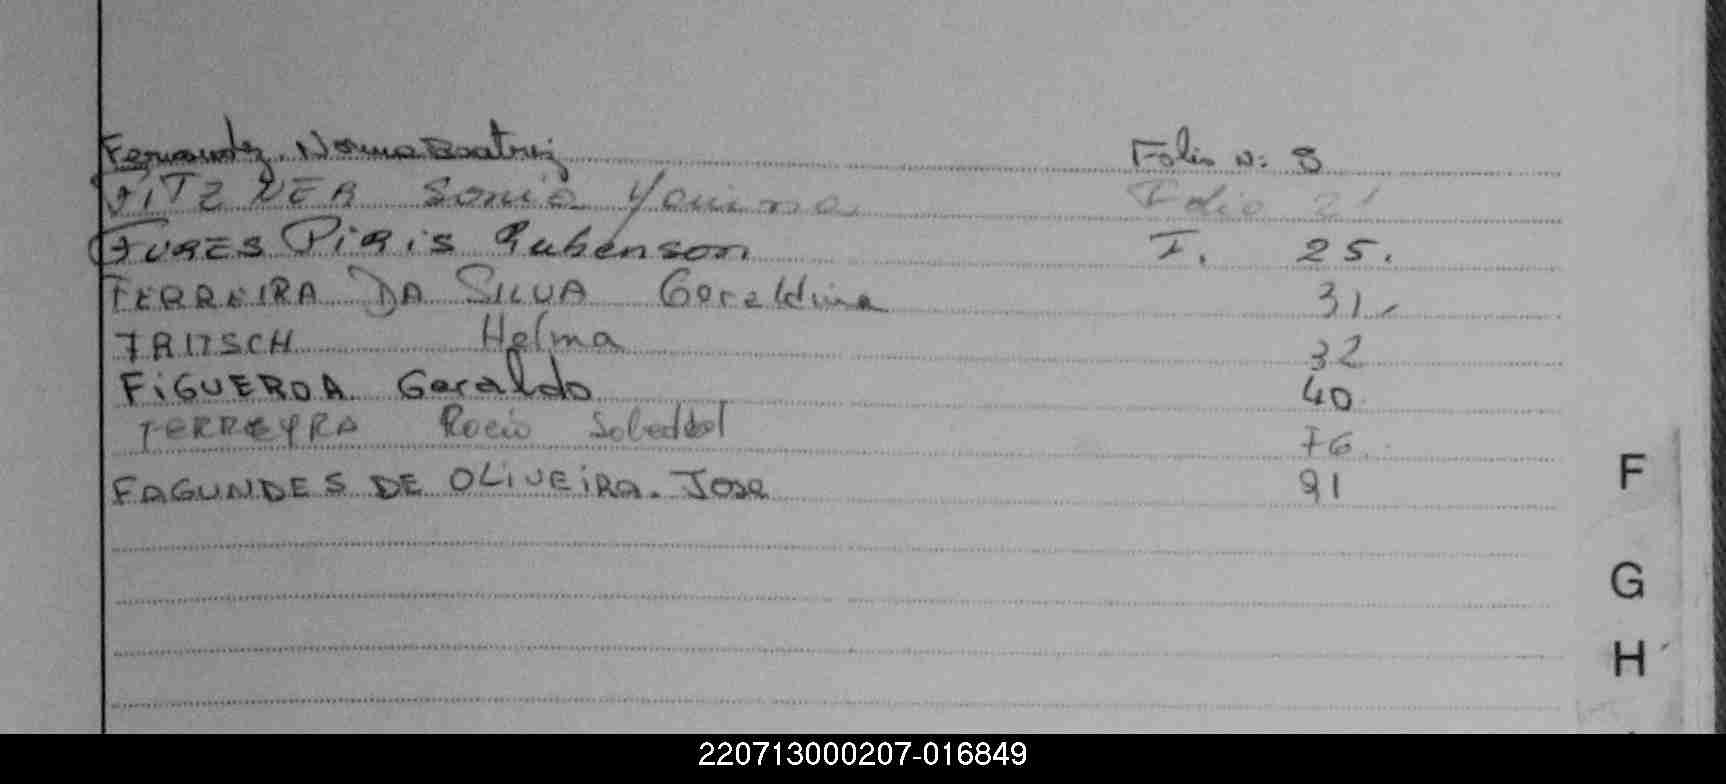 Fernandez, Norma Beatriz Folio N: 8
FITZNER Sonia Yanina Folio 21
FURES PiRis Rubenson F. 25.
FERREIRA DA SILVA Geraldina 31
FRITSCH Helma 32
FiGUEROA Geraldo 40
FERREYRA Rocio Soledad 76
FAGUNDES DE OLiVEiRA. Jose 91
F
G
H
220713000207-016849